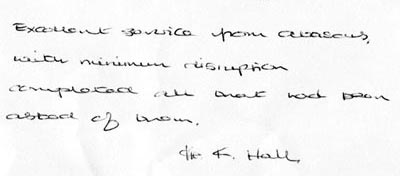 Excellent service from
with minimum disruption
completed all that had been
asked of them.
K. Hall